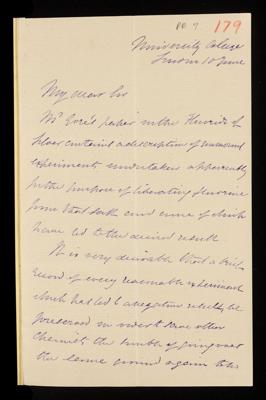 179
University College
London 10 June
My dear Sir
Mr Gore's paper on the Fluoride of
Silver contains a description of numerous
experiments undertaken apparently
for the purpose of liberating fluorine
from that salt and none of which
have led to the desired result
It is very desirable that a brief
record of every reasonable experiment
which has led to a negative result, be
preserved in order to save other
Chemists the trouble of going over
the same ground again to